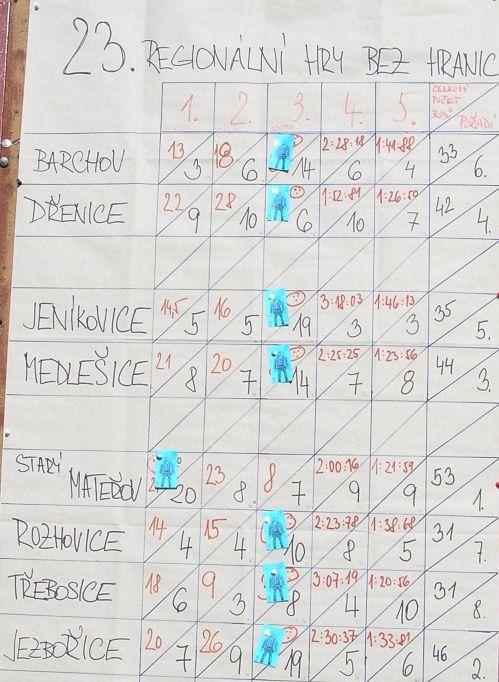 23. REGIONÁLNÍ HRY BEZ HRANIC
1. 2. 3. 4. 5. CELKOVÝ POČET BODŮ POŘADÍ
BARCHOV 13 3 18 6 14 2:28:18 6 1:41:88 4 33 6.
DŘENICE 22 9 28 10 6 1:52:81 10 1:26:50 7 42 4.
JENÍKOVICE 14,5 5 16 5 19 3:18:03 3 1:46:13 3 35 5.
MEDLEŠICE 21 8 20 7 14 2:25:25 7 1:23:56 8 44 3.
STARÝ MATEŘOV 20 23 8 8 7 2:00:16 9 1:21:59 9 53 1.
ROZHOVICE 14 4 15 4 10 2:23:78 8 1:38:68 5 31 7.
TŘEBOSICE 18 6 9 3 8 3:07:19 4 1:20:56 10 31 8.
JEZBOŘICE 20 7 26 9 19 2:30:37 5 1:33:81 6 46 2.